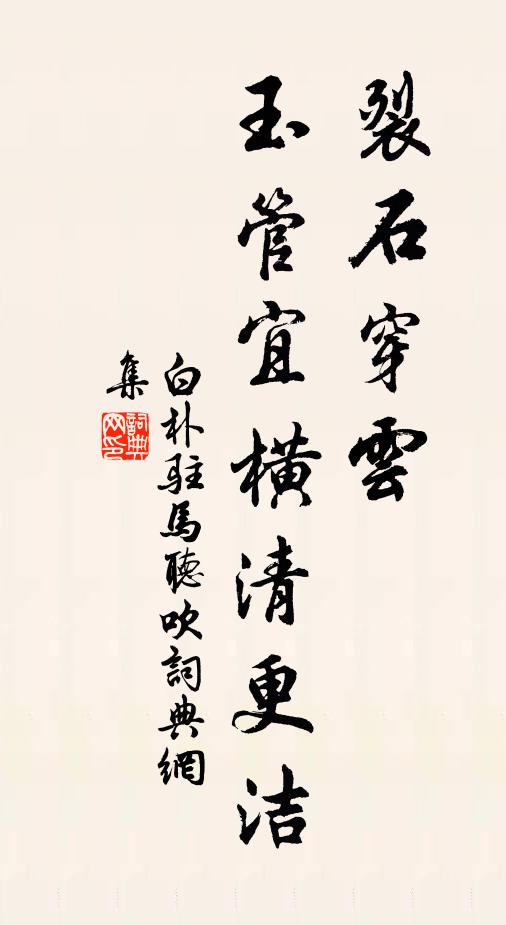 裂石穿雲
玉管宜橫清更洁
白朴駐馬聽吹詞典網
集
詞典网印